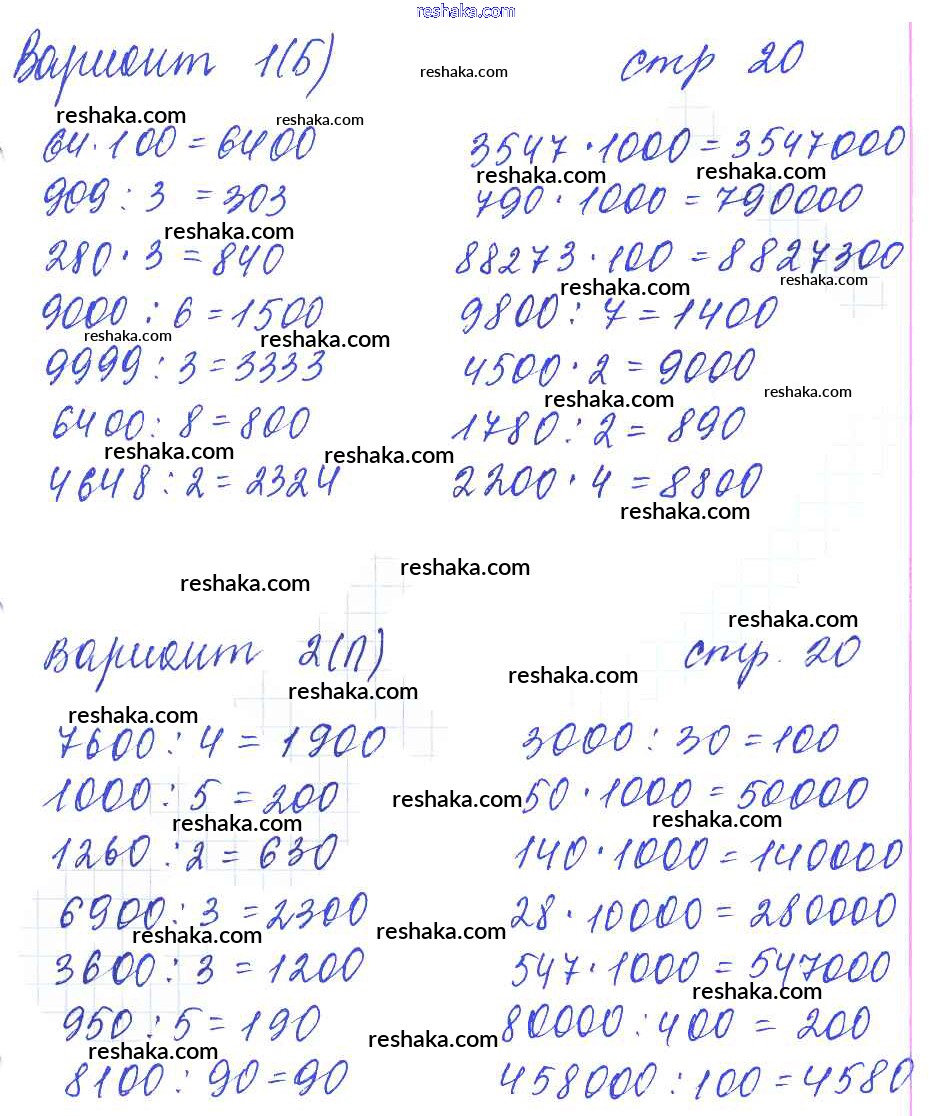 reshaka.com
Вариант 1(Б) reshaka.com стр 20
reshaka.com reshaka.com
64 · 100 = 6400 3547 · 1000 = 3547000
reshaka.com reshaka.com
909 : 3 = 303 790 · 1000 = 790000
reshaka.com
280 · 3 = 840 88273 · 100 = 8827300
reshaka.com reshaka.com
9000 : 6 = 1500 9800 : 7 = 1400
reshaka.com reshaka.com
9999 : 3 = 3333 4500 · 2 = 9000
reshaka.com reshaka.com
6400 : 8 = 800 1780 : 2 = 890
reshaka.com reshaka.com
4648 : 2 = 2324 2200 · 4 = 8800
reshaka.com
reshaka.com reshaka.com
reshaka.com
вариант 2(П) стр. 20
reshaka.com reshaka.com
reshaka.com
7600 : 4 = 1900 3000 : 30 = 100
1000 : 5 = 200 reshaka.com 50 · 1000 = 50000
reshaka.com reshaka.com
1260 : 2 = 630 140 · 1000 = 140000
6900 : 3 = 2300 28 · 10000 = 280000
reshaka.com reshaka.com
3600 : 3 = 1200 547 · 1000 = 547000
reshaka.com
950 : 5 = 190 80000 : 400 = 200
reshaka.com reshaka.com
8100 : 90 = 90 458000 : 100 = 4580